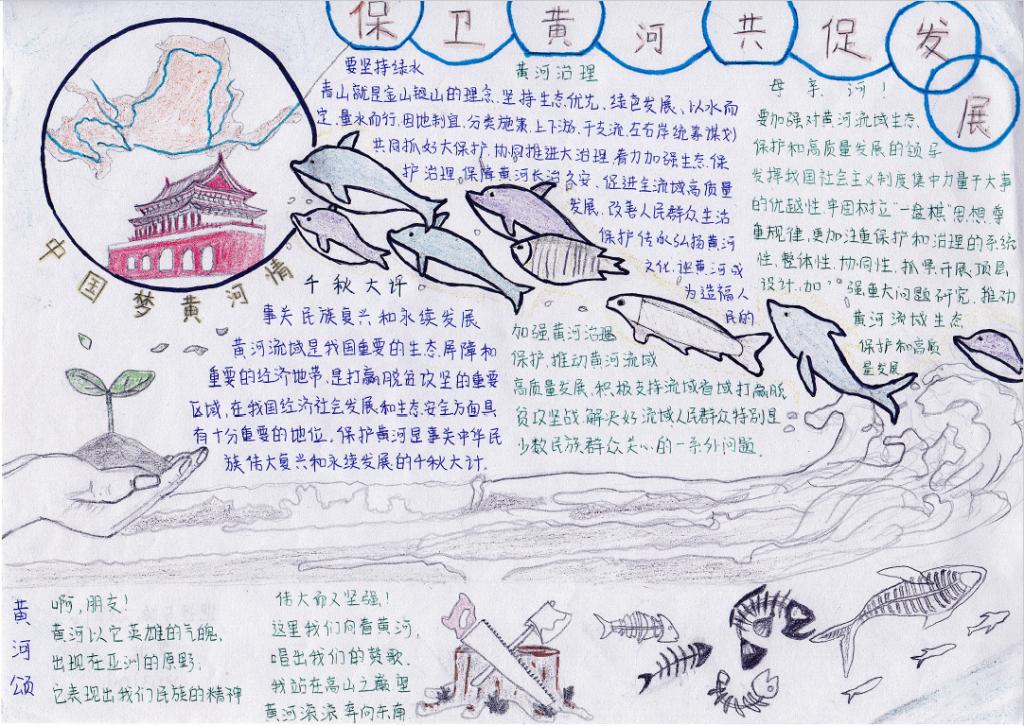 保卫黄河共促发展
中国梦黄河情
要坚持绿水
青山就是金山银山的理念、坚持生态优先、绿色发展、以水而
定、量水而行、因地制宜、分类施策、上下游、干支流、左右岸统筹谋划
共同抓好大保护、协同推进大治理、着力加强生态、保
护治理、保障黄河长治久安、促进全流域高质量
发展、改善人民群众生活
保护传承弘扬黄河
文化、让黄河成
为造福人
民的
黄河治理
母亲河!
要加强对黄河流域生态
保护和高质量发展的领导
发挥我国社会主义制度集中力量干大事
的优越性,牢固树立"一盘棋"思想,尊
重规律,更加注重保护和治理的系统
性、整体性、协同性、抓紧开展顶层
设计、加强重大问题研究、推动
黄河流域生态
保护和高质
量发展
千秋大计
事关民族复兴和永续发展
黄河流域是我国重要的生态屏障和
重要的经济地带,是打赢脱贫攻坚的重要
区域,在我国经济社会发展和生态安全方面具
有十分重要的地位。保护黄河是事关中华民
族伟大复兴和永续发展的千秋大计.
加强黄河治理
保护,推动黄河流域
高质量发展,积极支持流域省域打赢脱
贫攻坚战,解决好流域人民群众特别是
少数民族群众关心的一系外问题.
黄河颂
啊,朋友!
黄河以它英雄的气魄,
出现在亚洲的原野.
它表现出我们民族的精神
伟大而又坚强!
这里我们向着黄河,
唱出我们的赞歌.
我站在高山之巅望
黄河滚滚奔向东南